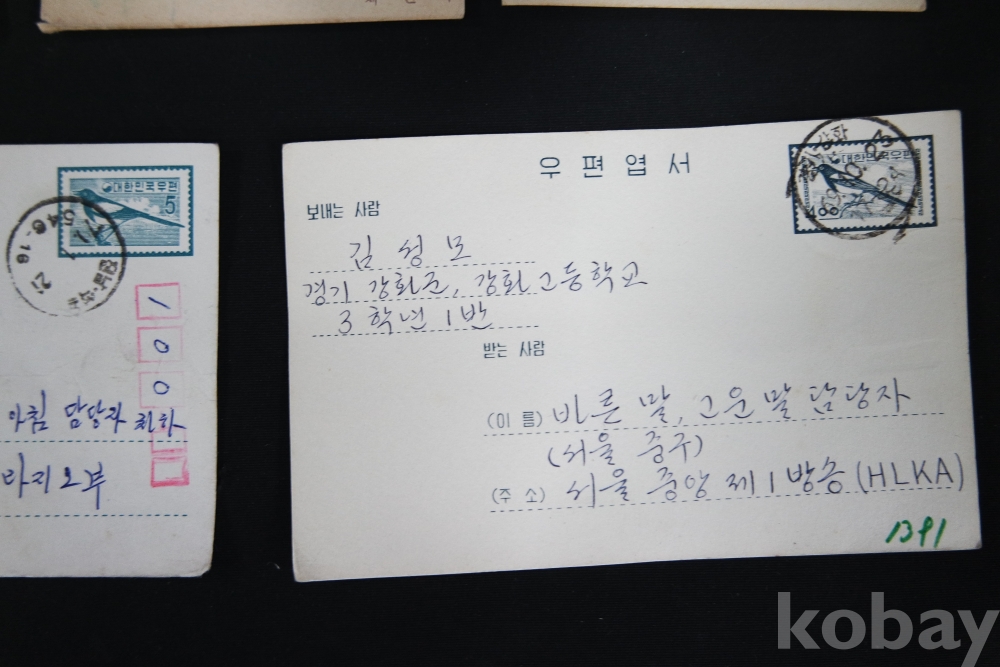 대한민국우편
5
546-16
21
1
0
0
아침 담당자 전하
라지오부
우편엽서
대한민국우편
400
보내는 사람
김성모
경기 강화군, 강화고등학교
3학년 1반
받는 사람
(이름) 바른말, 고운말 담당자
(서울 중구)
(주소) 서울 중앙 제1방송 (HLKA)
1391
kobay